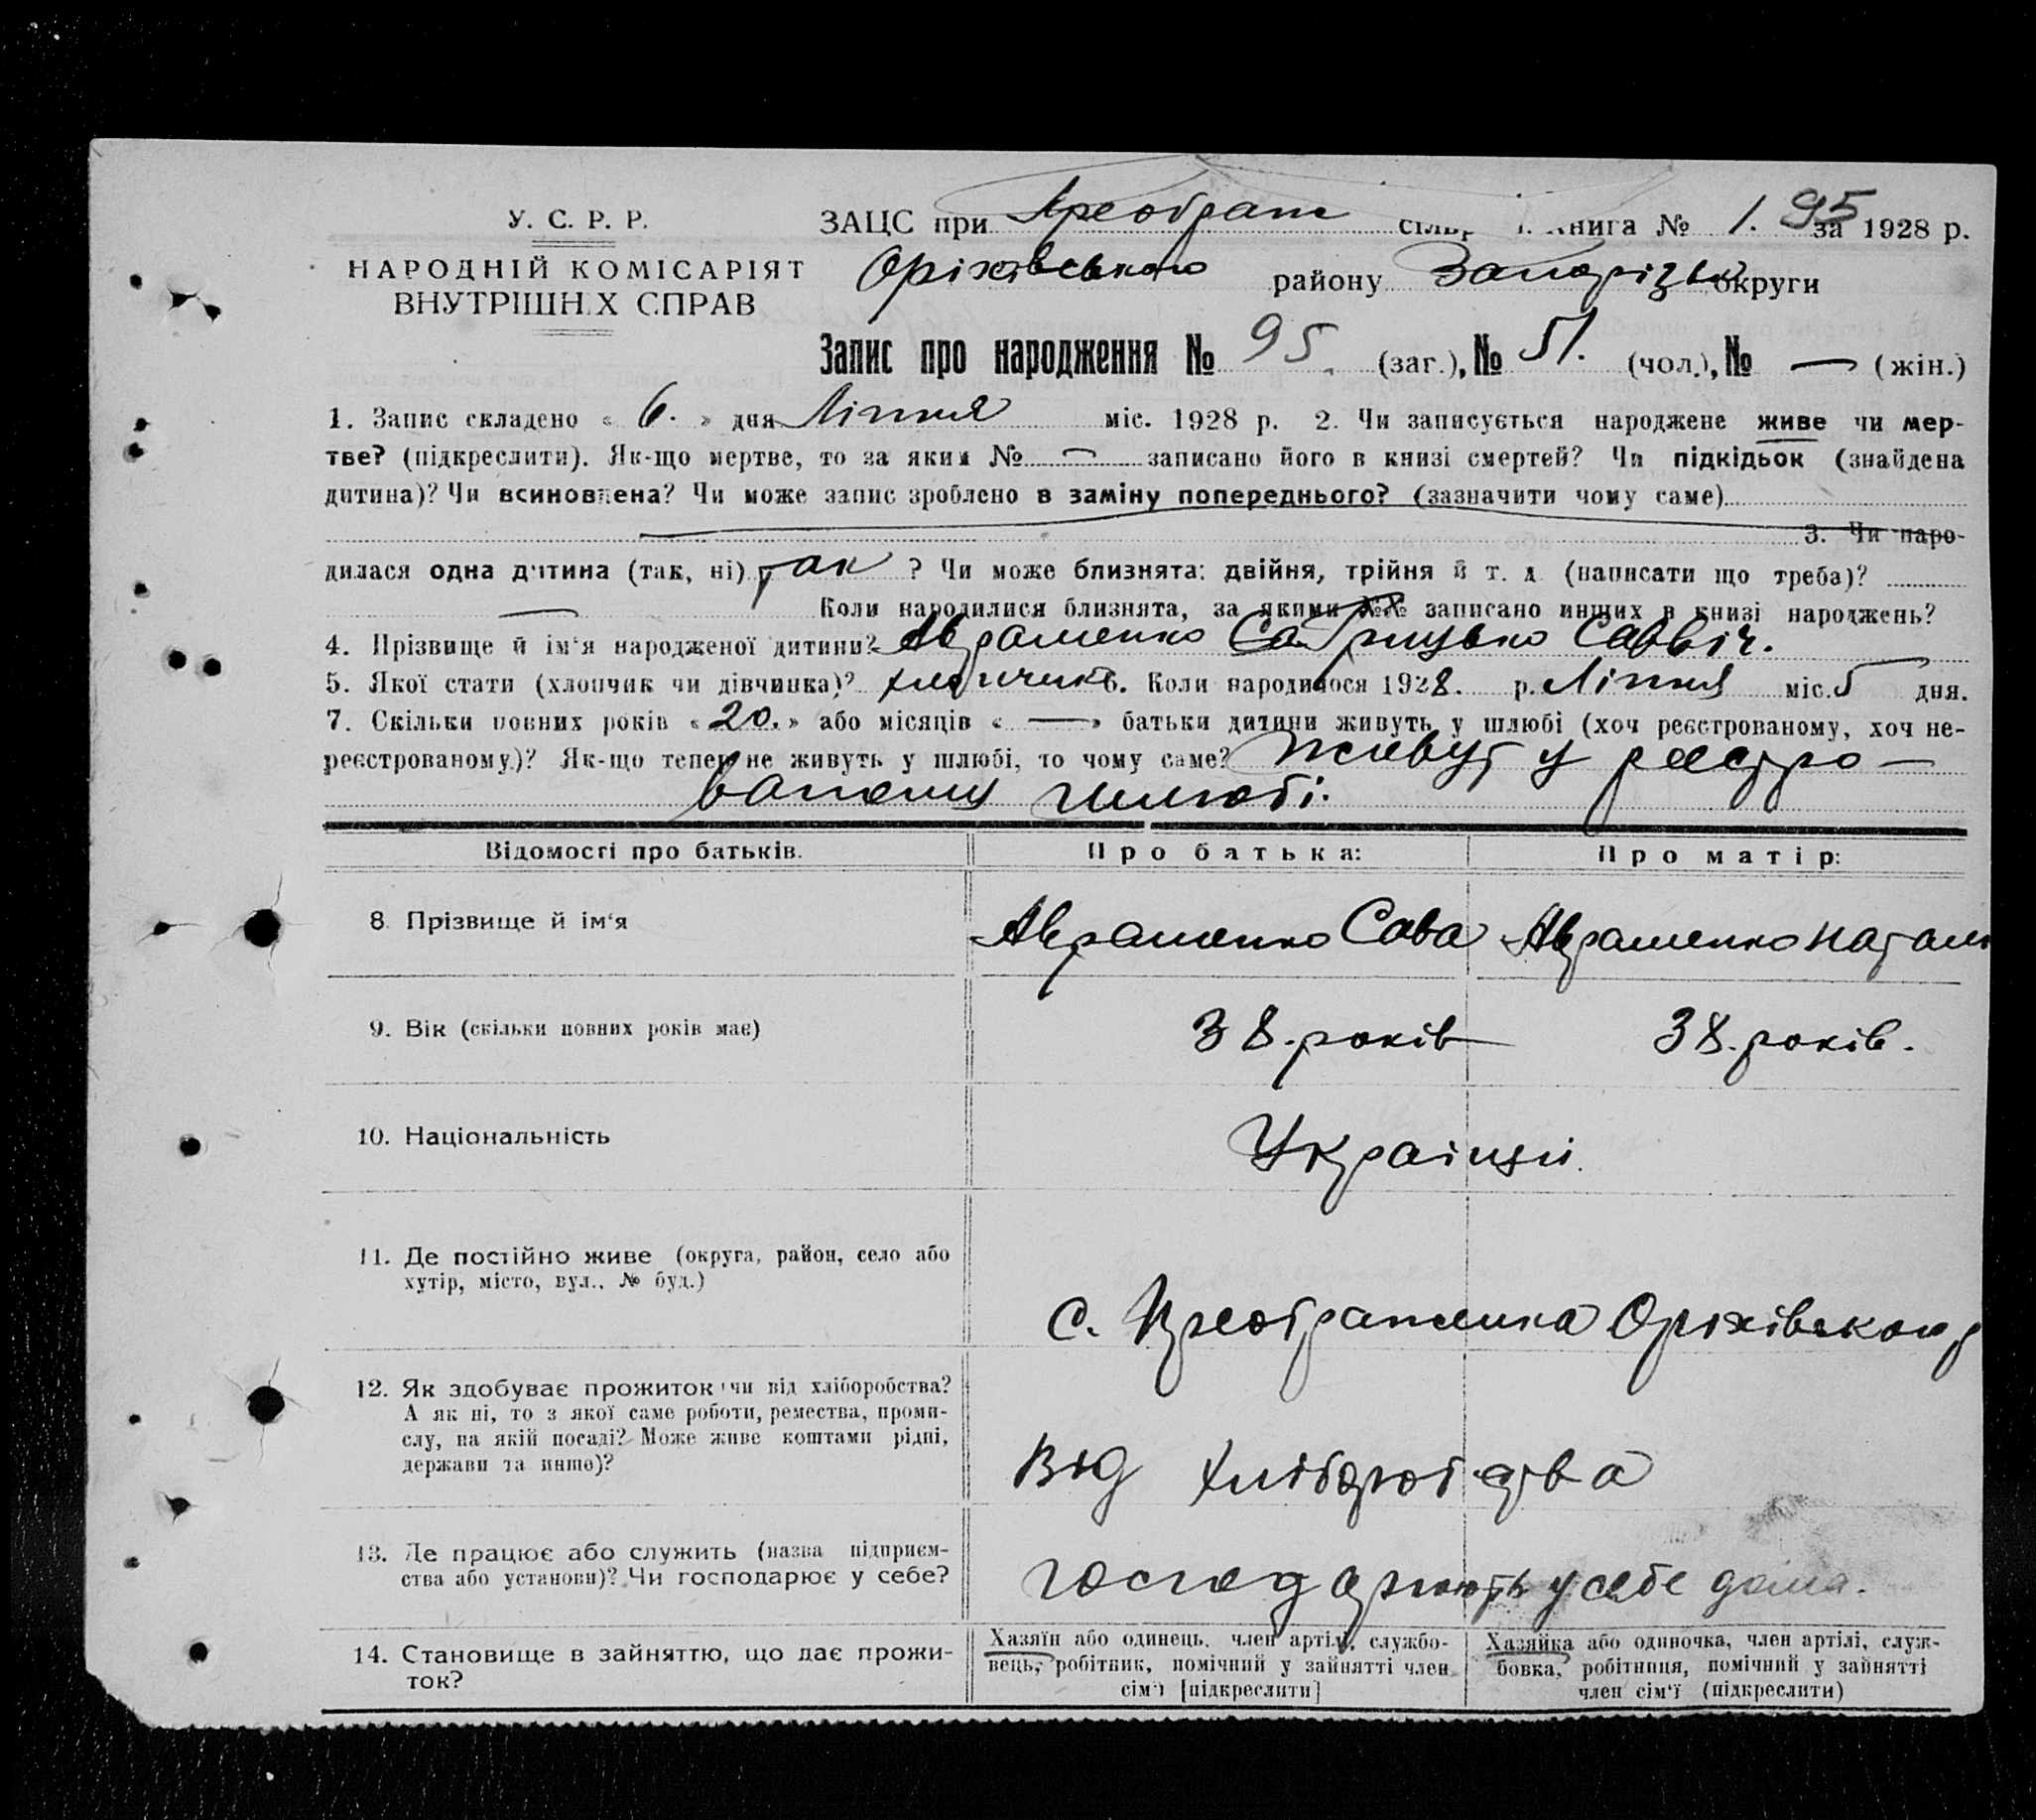 У. С. Р. Р.
НАРОДНІЙ КОМІСАРІЯТ
ВНУТРІШНІХ СПРАВ
ЗАЦС при Преображ сільр книга № 1. 95 за 1928 р.
Оріхівського району Запорізьк округи
Запис про народження № 95. (заг.), № 51. (чол.), № — (жін.)
1. Запис складено « 6. » дня Літня міс. 1928 р. 2. Чи записується народжене живе чи мер-
тве? (підкреслити). Як-що мертве, то за яким № — записано його в книзі смертей? Чи підкідьок (знайдена
дитина)? Чи всиновлена? Чи може запис зроблено в заміну попереднього? (зазначити чому саме)
3. Чи наро-
дилася одна дитина (так, ні) так ? Чи може близнята: двійня, трійня й т. д. (написати що треба)?
— Коли народилися близнята, за якими №№ записано инших в книзі народжень?
4. Прізвище й ім'я народженої дитини? Авраменко Са Грицько Саввіч.
5. Якої стати (хлопчик чи дівчинка)? хлопчик 6. Коли народилося 1928. р. Літня міс. 5 дня.
7. Скільки повних років «20.» або місяців « — » батьки дитини живуть у шлюбі (хоч реєстрованому, хоч не-
реєстрованому)? Як-що тепер не живуть у шлюбі, то чому саме? живут у реестро-
ваному шлюбі.
Відомості про батьків. Про батька: Про матір:
8. Прізвище й ім'я Авраменко Сава Авраменко Натал
9. Вік (скільки повних років має) 38. років 38. років.
10. Національність Українці.
11. Де постійно живе (округа, район, село або
хутір, місто, вул., № буд.)
с. Преображенка Оріхівського р
12. Як здобуває прожиток: чи від хліборобства?
А як ні, то з якої саме роботи, ремества, проми-
слу, на якій посаді? Може живе коштами рідні,
держави та инше)?
Від хліборобства
13. Де працює або служить (назва підприєм-
ства або установи)? Чи господарює у себе?
господарюють у себе дома.
14. Становище в зайняттю, що дає прожи-
ток?
Хазяїн або одинець, член артілі, службо-
вець, робітник, помічний у зайнятті член
сім'ї [підкреслити]
Хазяйка або одиночка, член артілі, служ-
бовка, робітниця, помічний у зайнятті
член сім'ї (підкреслити)